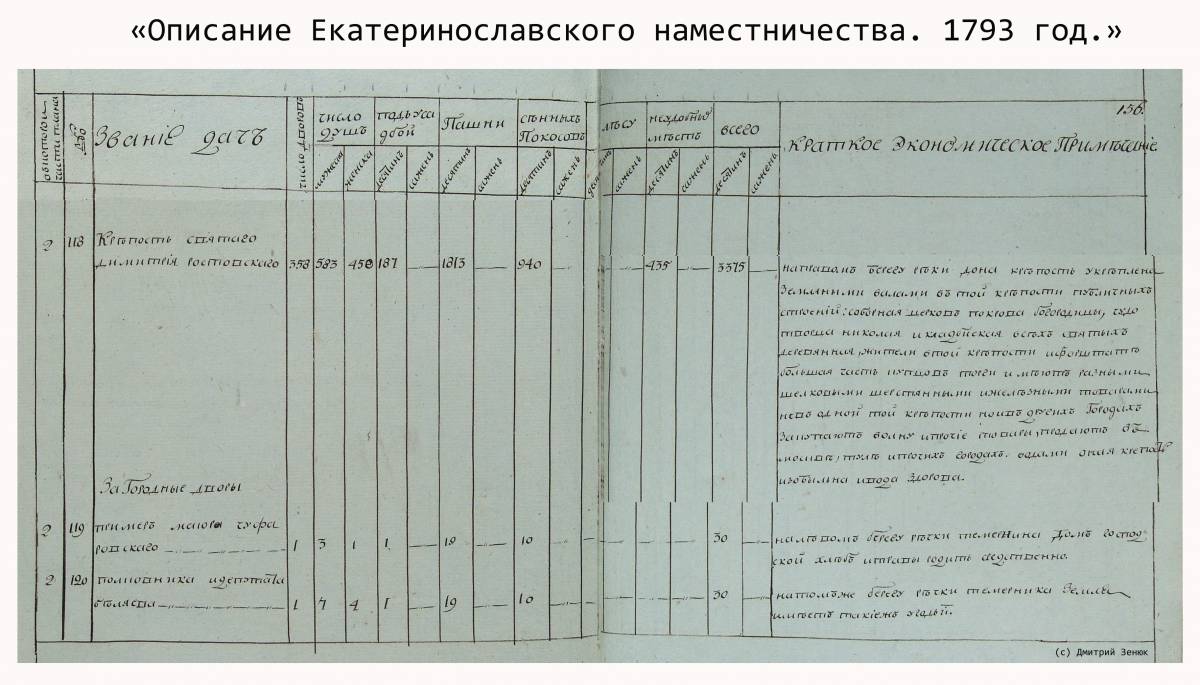 «Описание Екатеринославского наместничества. 1793 год.»
156.
Званіе дачъ
число дворовъ
число душъ
мужеска
женска
подъ усадбой
десятинъ
сажень
Пашни
десятинъ
сажень
сѣнныхъ Покосовъ
десятинъ
сажень
лѣсу
десятинъ
сажень
неудобныхъ мѣстъ
десятинъ
сажень
всего
десятинъ
сажень
Краткое Экономическое Примѣчаніе
2 118 Крѣпость святаго
димитрія ростовскаго 358 583 458 187 — 1813 — 940 — — — 435 — 3375 —
направомъ берегу рѣки дона крѣпость укрѣплена
Земляными валами въ той крѣпости публичныхъ
строеній: соборная церковь покрова богородицы, чудо
творца николая и кладбищская всехъ святыхъ
деревянная, жители втой крѣпости ифорштатѣ
большая часть купцовъ торги имѣютъ разными
шелковыми шерстяными ижелѣзными товарами
невъ одной той крѣпости ноивъ другихъ Городахъ
Закупаютъ волну ипрочіе товары, продаютъ въ
москвѣ, тулѣ ипрочихъ городахъ. водами оная крепость
изобильна ивода здорова.
Загородные дворы
2 119 примеръ маиора
ровскаго — 1 3 1 1 — 19 — 10 — — — — — 30 —
налѣвомъ берегу рѣчки темерника Домъ господ
ской хлѣбъ итравы родитъ средственно.
2 120 полковника идепутата
бѣляева — 1 7 4 1 — 19 — 10 — — — — — 30 —
натомъже берегу рѣчки темерника Земля
имѣетъ такіежъ угодьи.
(с) Дмитрий Зенюк